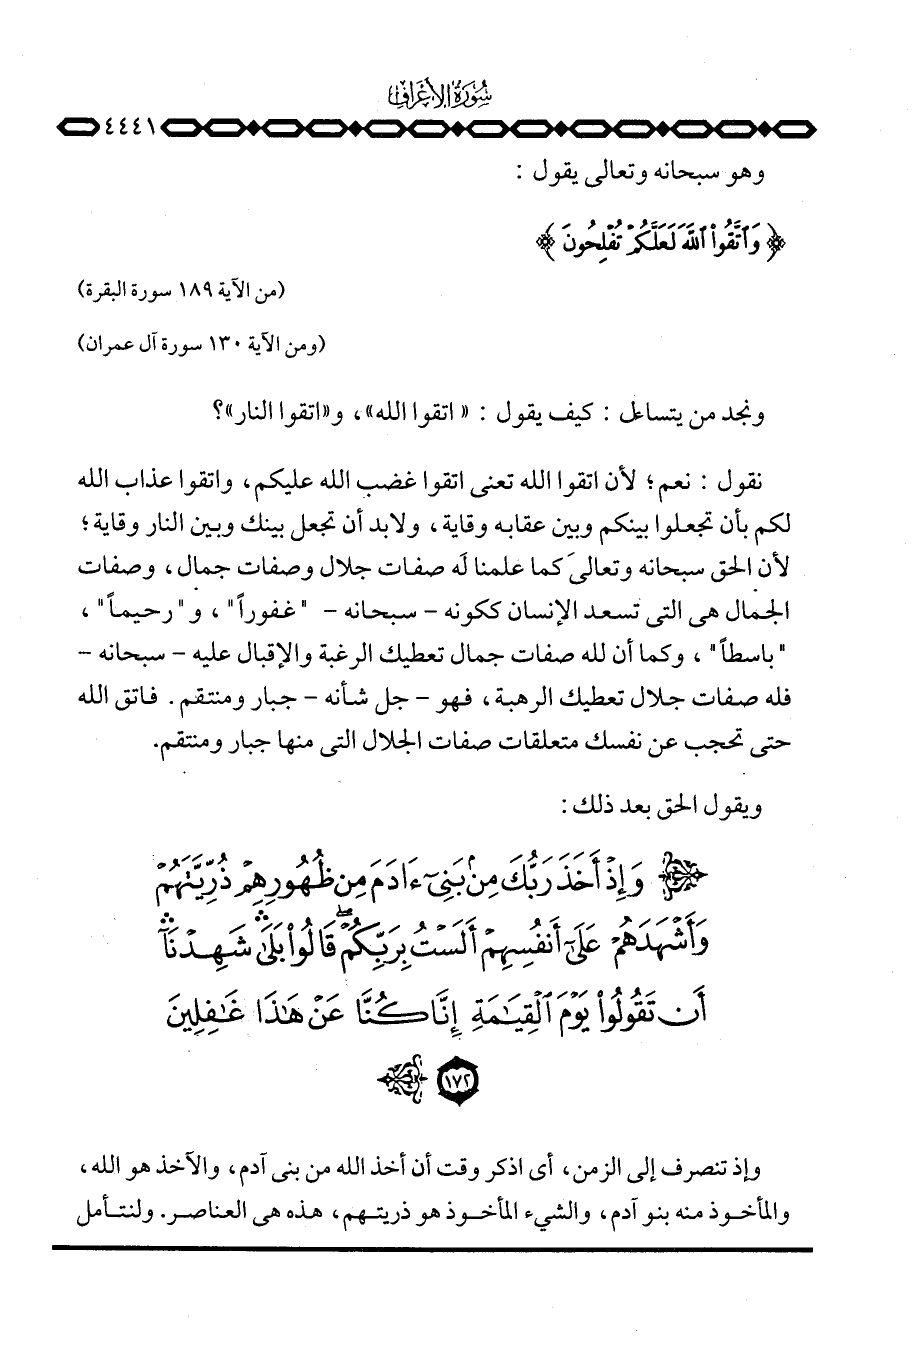 سُورَةُ الأَعْرَافِ
٤٤٤١
وهو سبحانه وتعالى يقول :
﴿ وَٱتَّقُواْ ٱللَّهَ لَعَلَّكُمْ تُفْلِحُونَ ﴾
(من الآية ١٨٩ سورة البقرة)
(ومن الآية ١٣٠ سورة آل عمران)
ونجد من يتساءل : كيف يقول : « اتقوا الله»، و«اتقوا النار»؟
نقول : نعم؛ لأن اتقوا الله تعنى اتقوا غضب الله عليكم، واتقوا عذاب الله
لكم بأن تجعلوا بينكم وبين عقابه وقاية، ولابد أن تجعل بينك وبين النار وقاية؛
لأن الحق سبحانه وتعالى كما علمنا لَه صفات جلال وصفات جمال، وصفات
الجمال هى التى تسعد الإنسان ككونه - سبحانه - "غفوراً"، و"رحيماً"،
"باسطاً"، وكما أن لله صفات جمال تعطيك الرغبة والإقبال عليه - سبحانه -
فله صفات جلال تعطيك الرهبة، فهو - جل شأنه - جبار ومنتقم. فاتق الله
حتى تحجب عن نفسك متعلقات صفات الجلال التى منها جبار ومنتقم.
ويقول الحق بعد ذلك:
﴿ وَإِذْ أَخَذَ رَبُّكَ مِنۢ بَنِىٓ ءَادَمَ مِن ظُهُورِهِمْ ذُرِّيَّتَهُمْ
وَأَشْهَدَهُمْ عَلَىٰٓ أَنفُسِهِمْ أَلَسْتُ بِرَبِّكُمْ ۖ قَالُواْ بَلَىٰ ۛ شَهِدْنَآ ۛ
أَن تَقُولُواْ يَوْمَ ٱلْقِيَٰمَةِ إِنَّا كُنَّا عَنْ هَٰذَا غَٰفِلِينَ
١٧٢ ﴾
وإذ تنصرف إلى الزمن، أى اذكر وقت أن أخذ الله من بنى آدم، والآخذ هو الله،
والمأخوذ منه بنو آدم، والشيء المأخوذ هو ذريتهم، هذه هى العناصر. ولنتأمل